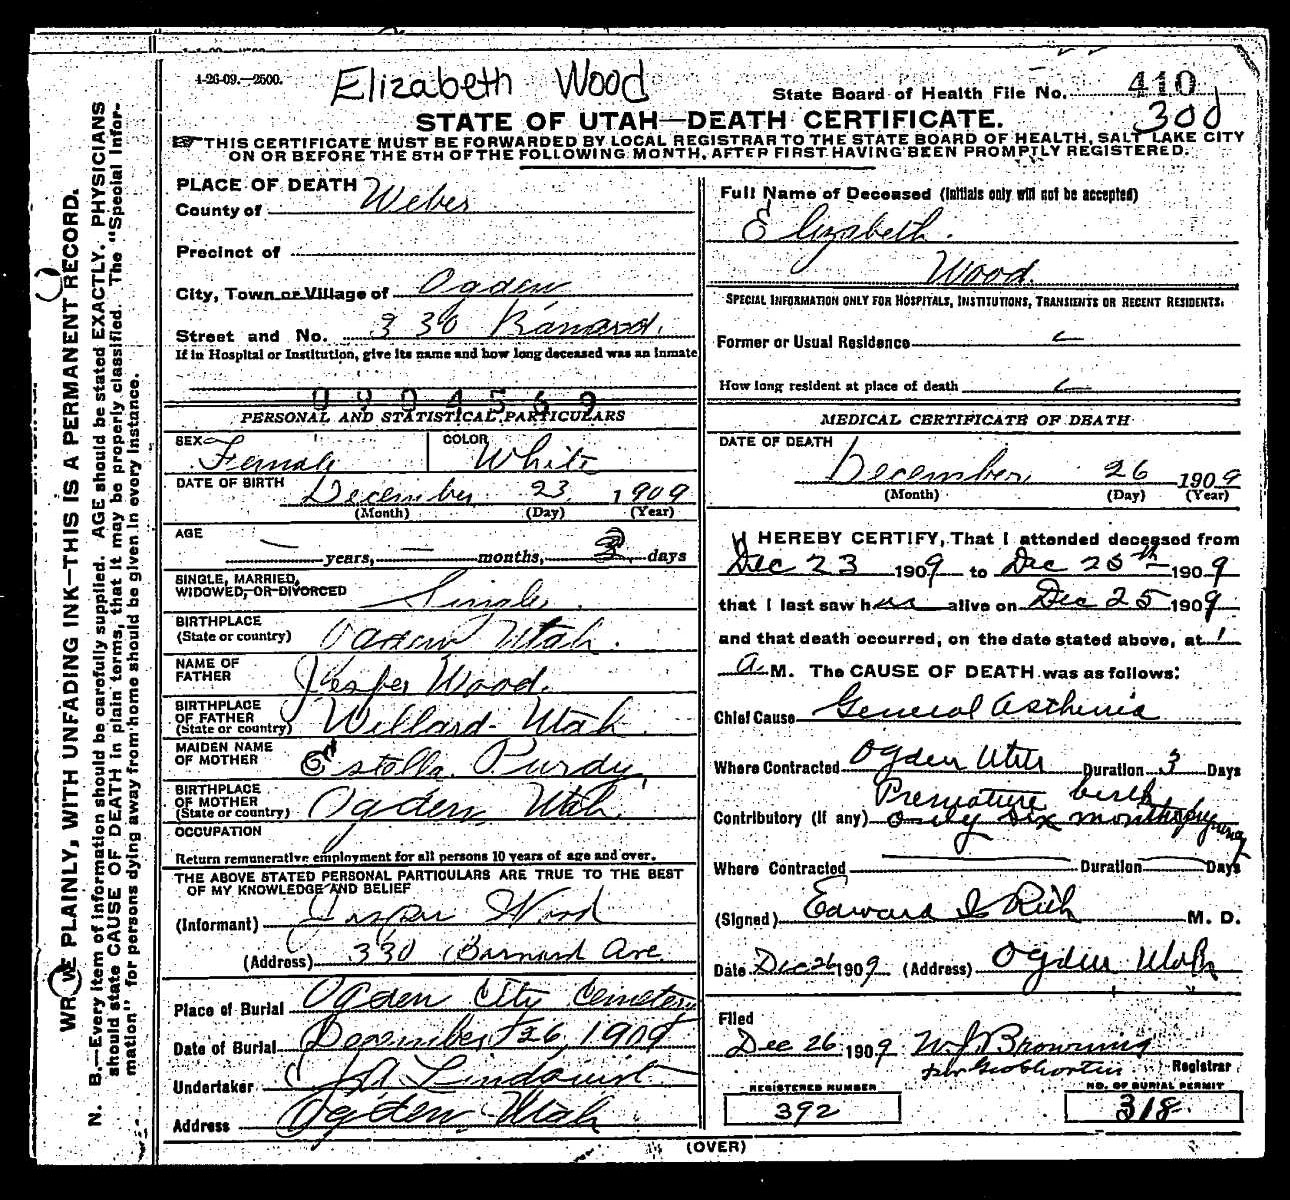 WRITE PLAINLY, WITH UNFADING INK—THIS IS A PERMANENT RECORD.
N. B.—Every item of information should be carefully supplied. AGE should be stated EXACTLY. PHYSICIANS
should state CAUSE OF DEATH in plain terms, that it may be properly classified. The "Special Infor-
mation" for persons dying away from home should be given in every instance.
4-26-09.—2500.
Elizabeth Wood
State Board of Health File No. 410
300
STATE OF UTAH—DEATH CERTIFICATE.
THIS CERTIFICATE MUST BE FORWARDED BY LOCAL REGISTRAR TO THE STATE BOARD OF HEALTH, SALT LAKE CITY
ON OR BEFORE THE 5TH OF THE FOLLOWING MONTH, AFTER FIRST HAVING BEEN PROMPTLY REGISTERED.
PLACE OF DEATH
County of Weber
Precinct of
City, Town or Village of Ogden
Street and No. 330
If in Hospital or Institution, give its name and how long deceased was an inmate
0904569
PERSONAL AND STATISTICAL PARTICULARS
SEX Female COLOR White
DATE OF BIRTH December 23 1909
(Month) (Day) (Year)
AGE — years, — months, 3 days
SINGLE, MARRIED,
WIDOWED, OR DIVORCED Single.
BIRTHPLACE
(State or country) Ogden Utah.
NAME OF
FATHER Jesper Wood.
BIRTHPLACE
OF FATHER
(State or country) Willard Utah
MAIDEN NAME
OF MOTHER Estella Purdy
BIRTHPLACE
OF MOTHER
(State or country) Ogden, Utah.
OCCUPATION
Return remunerative employment for all persons 10 years of age and over.
THE ABOVE STATED PERSONAL PARTICULARS ARE TRUE TO THE BEST
OF MY KNOWLEDGE AND BELIEF
(Informant) Jasper Wood
(Address) 330 Barnard Ave.
Place of Burial Ogden City Cemetery
Date of Burial December 26, 1909
Undertaker Lindquist
Address Ogden Utah
Full Name of Deceased (Initials only will not be accepted)
Elizabeth.
Wood.
SPECIAL INFORMATION ONLY FOR HOSPITALS, INSTITUTIONS, TRANSIENTS OR RECENT RESIDENTS.
Former or Usual Residence
How long resident at place of death
MEDICAL CERTIFICATE OF DEATH
DATE OF DEATH
December, 26 1909
(Month) (Day) (Year)
I HEREBY CERTIFY, That I attended deceased from
Dec 23 1909 to Dec 25th 1909
that I last saw her alive on Dec 25 1909
and that death occurred, on the date stated above, at 1
a M. The CAUSE OF DEATH was as follows:
Chief Cause General Asthenia
Where Contracted Ogden Utah Duration 3 Days
Premature birth
Contributory (If any) only six months pregnancy
Where Contracted Duration Days
(Signed) Edward I Rich M. D.
Date Dec 26 1909 (Address) Ogden Utah
Filed
Dec 26 1909 W. J. Browning
Registrar
REGISTERED NUMBER
392
NO. OF BURIAL PERMIT
318
(OVER)